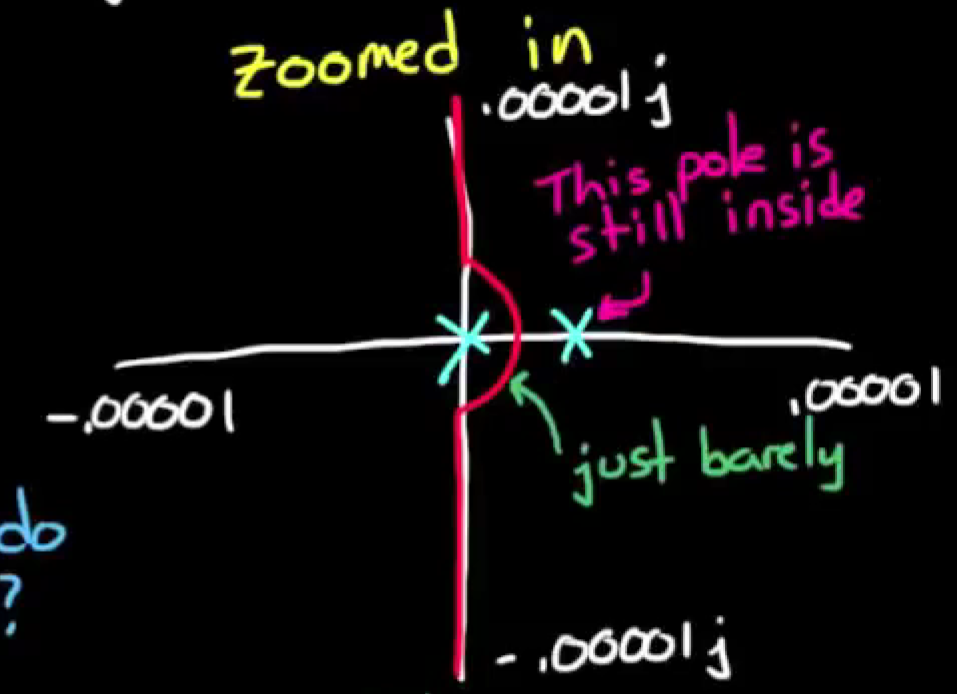 Zoomed in
.00001j
This pole is
still inside
-.00001
.00001
just barely
do
?
-.00001j